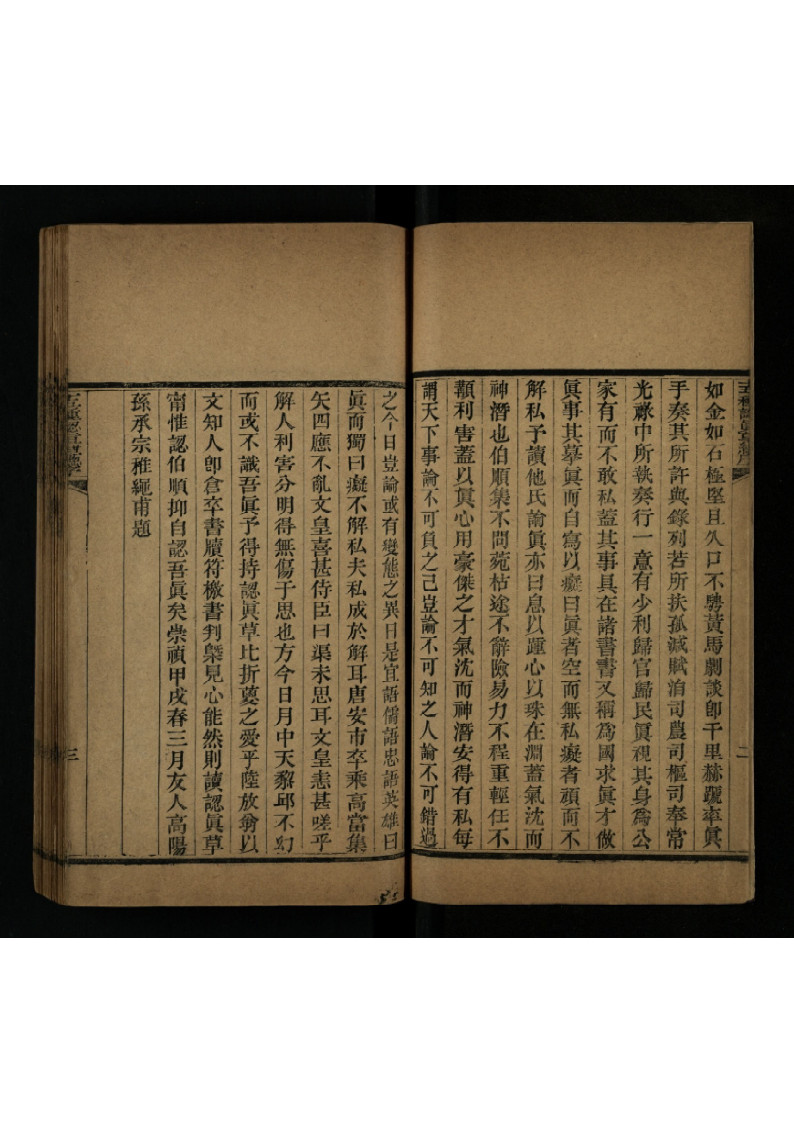 如金如石極堅且久口不騁黃馬劇談卽千里赫蹏率眞
手奏其所許與錄列若所扶孤減賦洎司農司樞司奉常
光祿中所執奏行一意有少利歸官歸民眞視其身爲公
家有而不敢私蓋其事具在諸書書又稱爲國求眞才做
眞事其摹眞而自寫以癡曰眞者空而無私癡者頑而不
解私予讀他氏論眞亦曰息以踵心以珠在淵蓋氣沈而
神潛也伯順集不問菀枯途不辭險易力不程重輕任不
顧利害蓋以眞心用豪傑之才氣沈而神潛安得有私每
謂天下事論不可負之己豈論不可知之人論不可錯過
之今日豈論或有變態之異日是宜語儒語忠語英雄曰
眞而獨曰癡不解私夫私成於解耳唐安市卒乘高當集
矢四應不亂文皇喜甚侍臣曰渠未思耳文皇恚甚嗟乎
解人利害分明得無傷于思也方今日月中天黎邱不幻
而或不識吾眞予得持認眞草比折葼之愛乎陸放翁以
文知人卽倉卒書牘符檄書判槩見心能然則讀認眞草
甯惟認伯順抑自認吾眞矣崇禎甲戌春三月友人高陽
孫承宗稚繩甫題
二
三